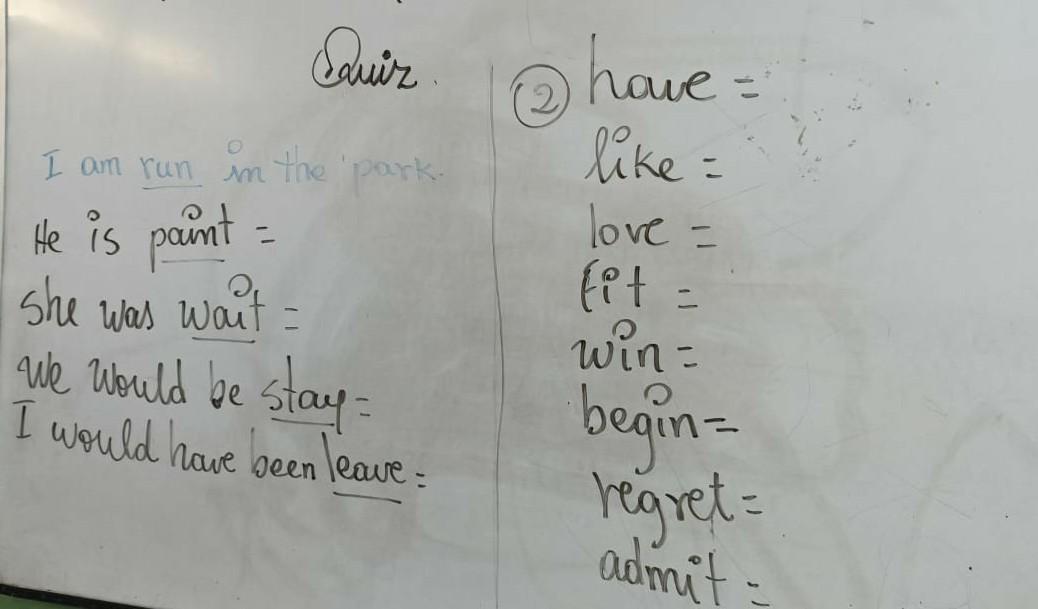 Quiz.
I am run in the park.
He is paint =
She was wait =
We would be stay =
I would have been leave =
② have =
like =
love =
fit =
win =
begin =
regret =
admit =